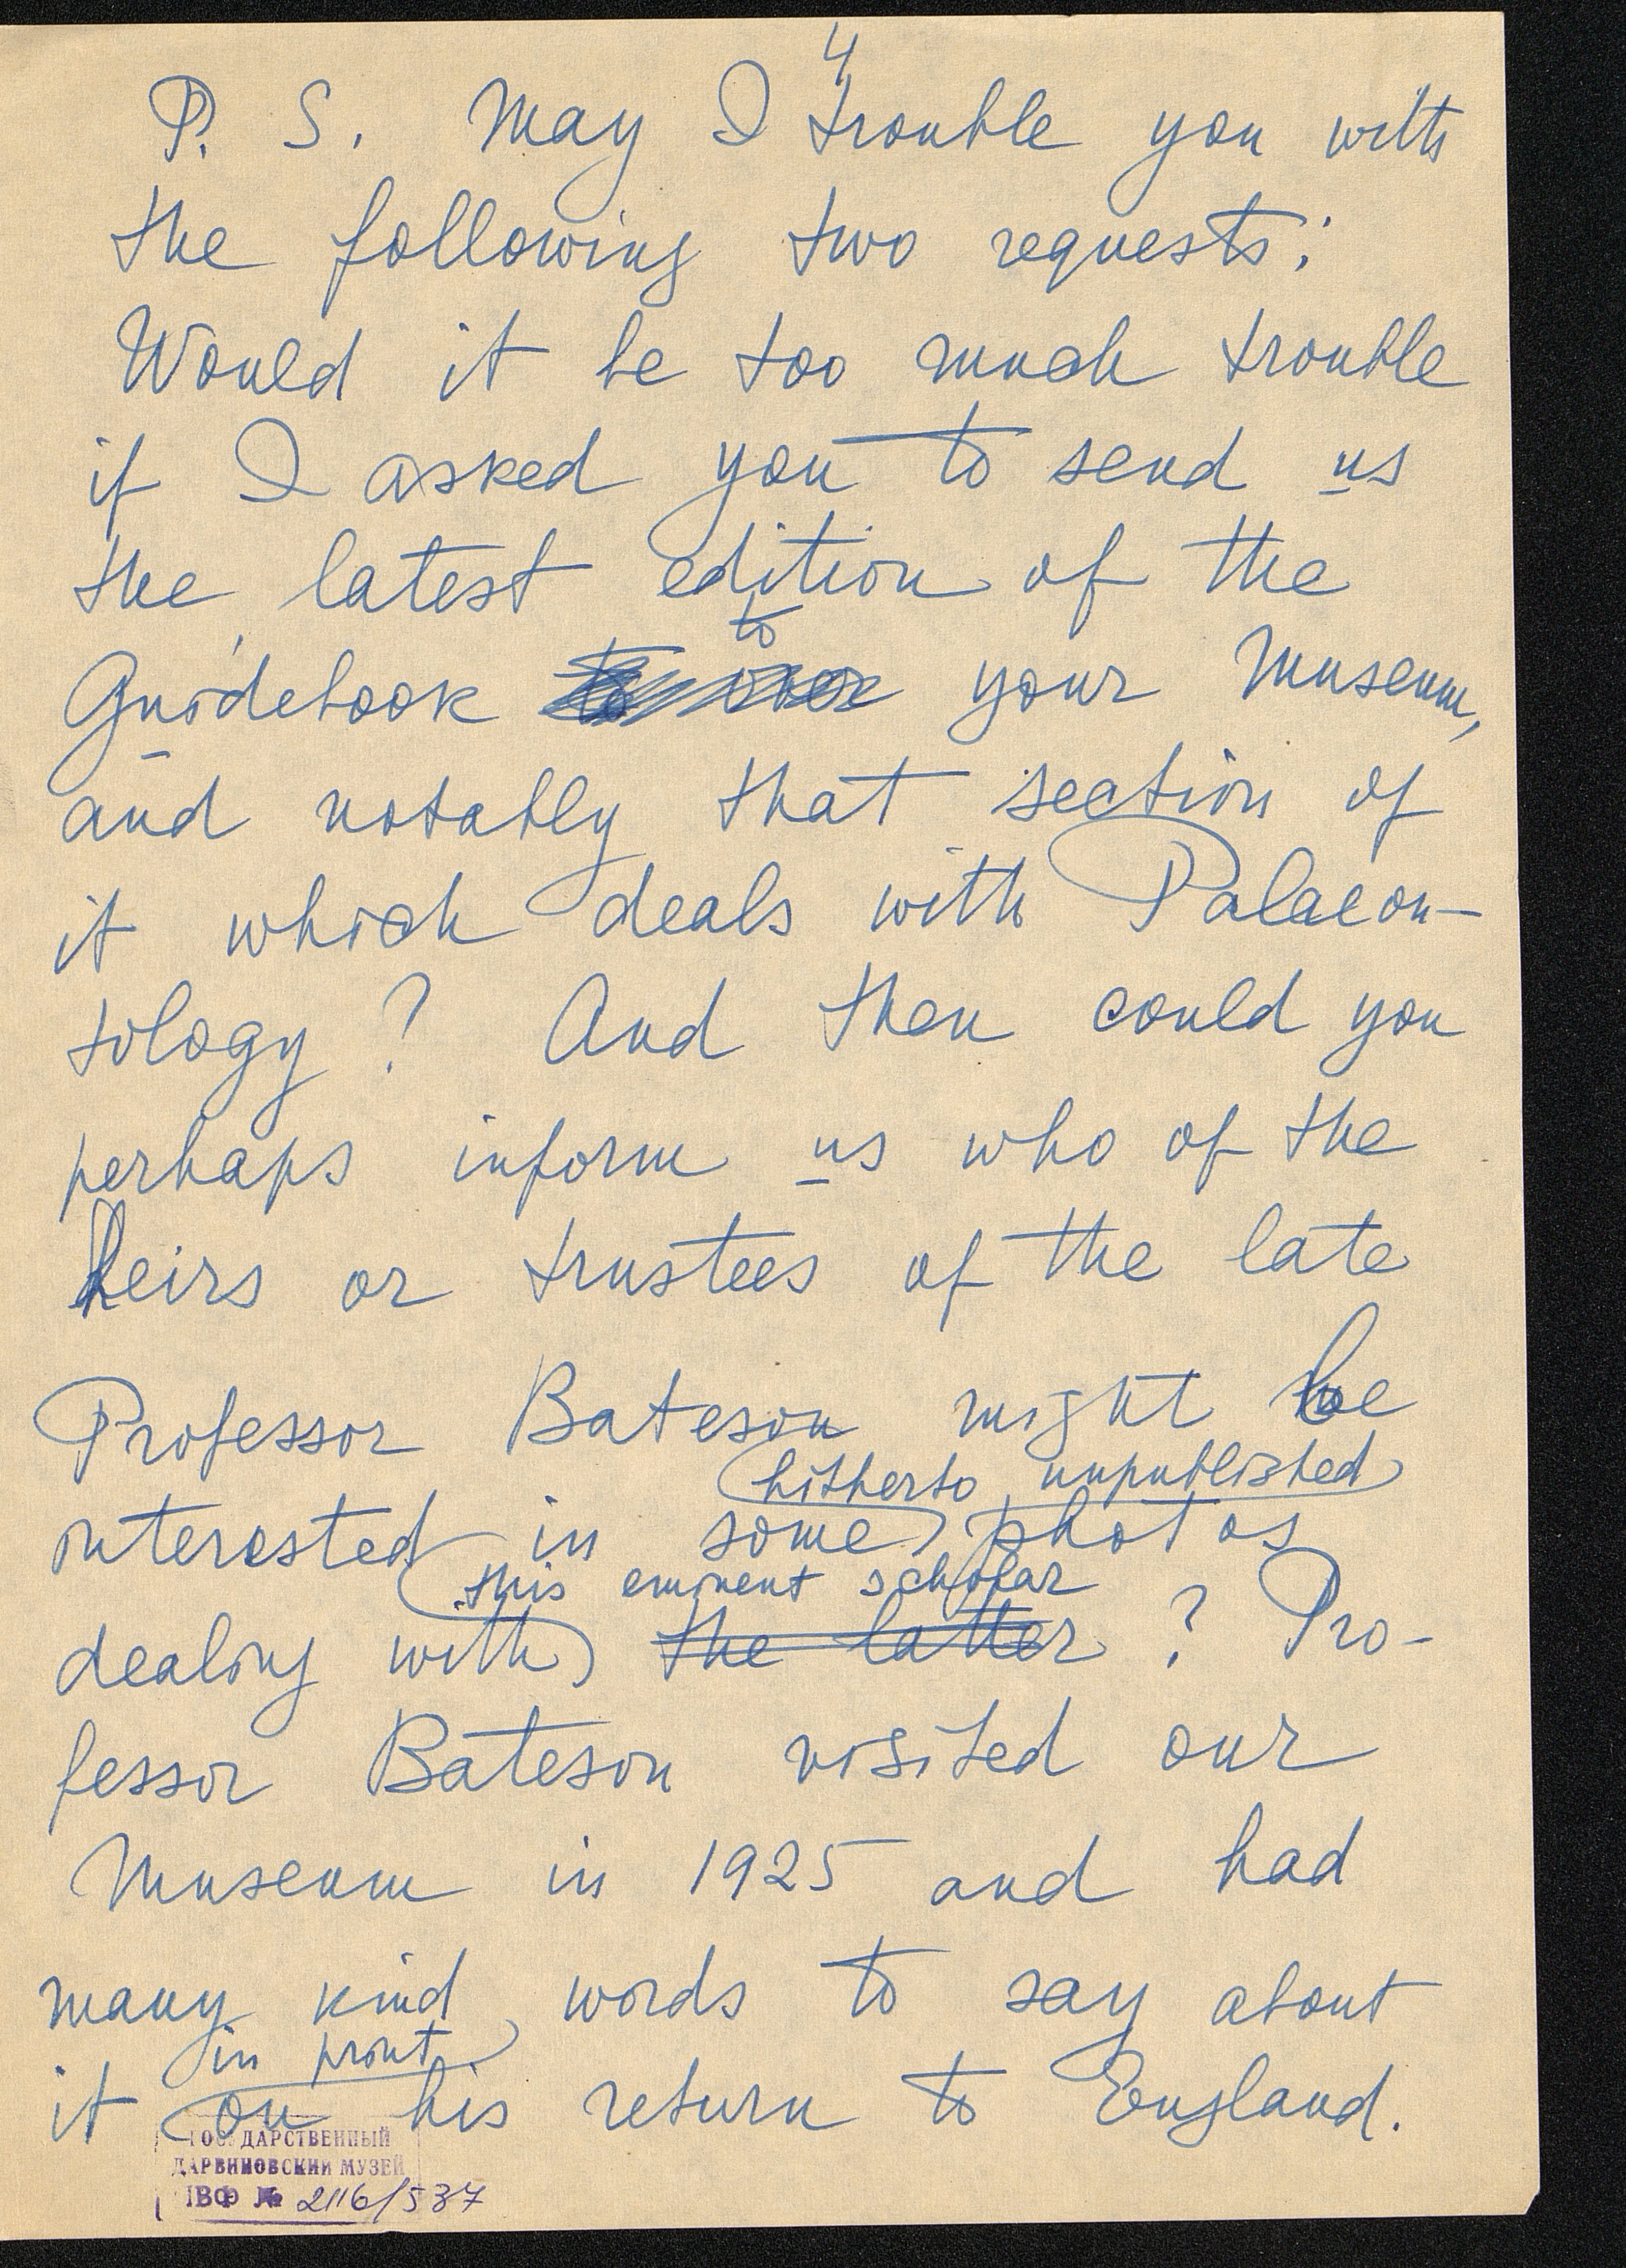 4
P. S. May I trouble you with
the following two requests:
Would it be too much trouble
if I asked you to send us
the latest edition of the
to
Guidebook to over your Museum,
and notably that section of
it which deals with Palaeon-
tology? And then could you
perhaps inform us who of the
heirs or trustees of the late
Professor Bateson might be
hitherto unpublished
interested in some photos
this eminent scholar
dealing with the latter? Pro-
fessor Bateson visited our
Museum in 1925 and had
many kind words to say about
in print
it on his return to England.
ГОСУДАРСТВЕННЫЙ
ДАРВИНОВСКИЙ МУЗЕЙ
НВФ № 2116/537